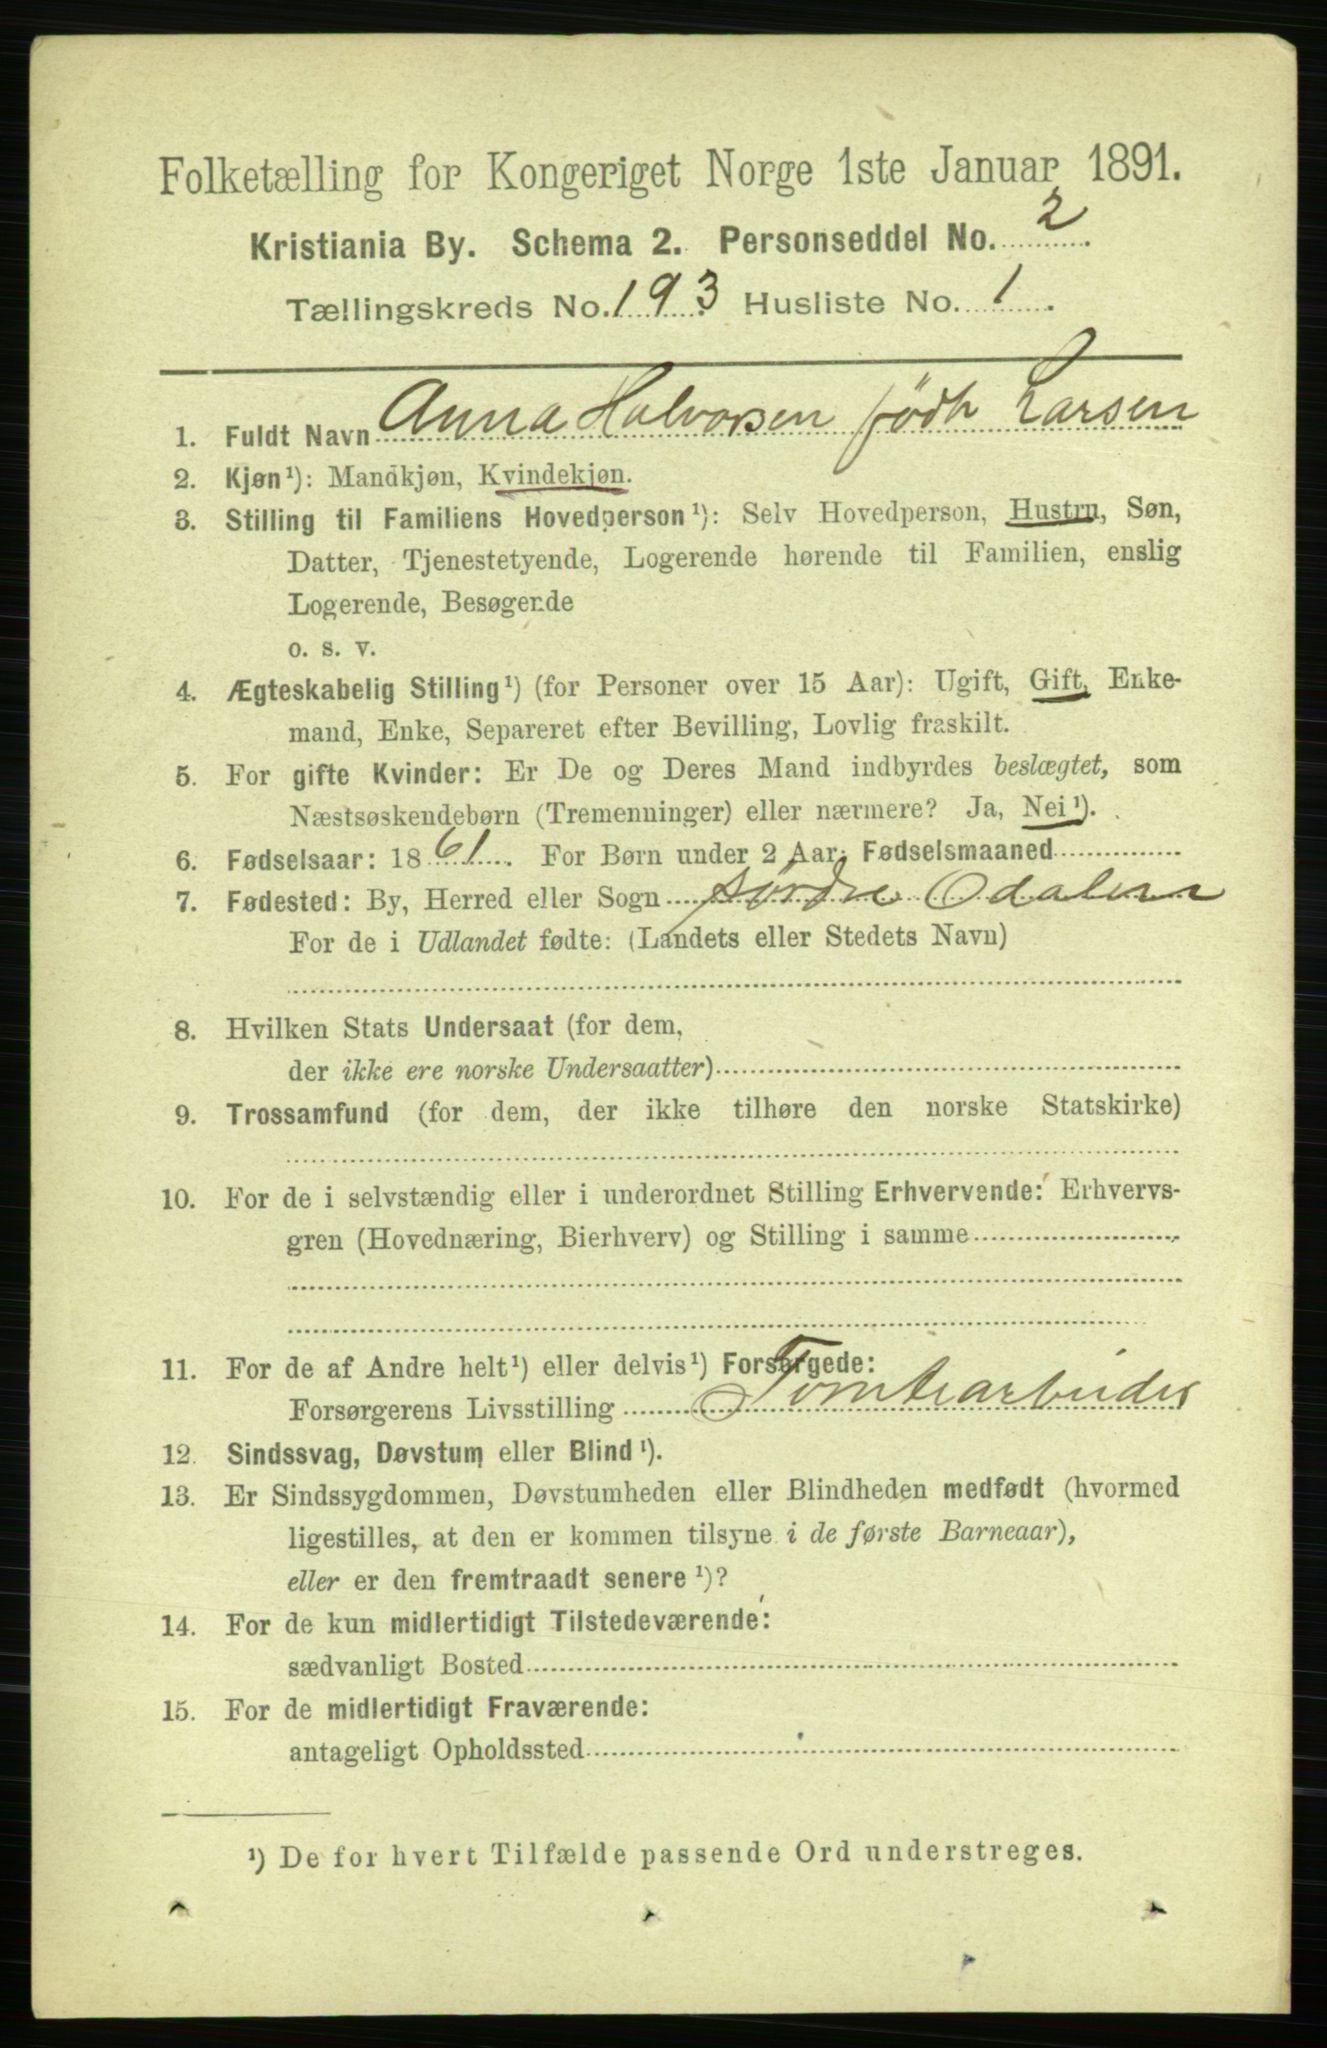 Folketælling for Kongeriget Norge 1ste Januar 1891.
Kristiania By. Schema 2. Personseddel No. 2
Tællingskreds No. 193 Husliste No. 1
1. Fuldt Navn Anna Halvorsen födt Larsen
2. Kjøn¹): Mandkjøn, Kvindekjøn.
3. Stilling til Familiens Hovedperson¹): Selv Hovedperson, Hustru, Søn,
Datter, Tjenestetyende, Logerende hørende til Familien, enslig
Logerende, Besøgende
o. s. v.
4. Ægteskabelig Stilling¹) (for Personer over 15 Aar): Ugift, Gift, Enke-
mand, Enke, Separeret efter Bevilling, Lovlig fraskilt.
5. For gifte Kvinder: Er De og Deres Mand indbyrdes beslægtet, som
Næstsøskendebørn (Tremenninger) eller nærmere? Ja, Nei¹).
6. Fødselsaar: 1861. For Børn under 2 Aar: Fødselsmaaned
7. Fødested: By, Herred eller Sogn söndre Odalen
For de i Udlandet fødte: (Landets eller Stedets Navn)
8. Hvilken Stats Undersaat (for dem,
der ikke ere norske Undersaatter)
9. Trossamfund (for dem, der ikke tilhøre den norske Statskirke)
10. For de i selvstændig eller i underordnet Stilling Erhvervende: Erhvervs-
gren (Hovednæring, Bierhverv) og Stilling i samme
11. For de af Andre helt¹) eller delvis¹) Forsørgede:
Forsørgerens Livsstilling Tomtearbeider
12. Sindssvag, Døvstum eller Blind¹).
13. Er Sindssygdommen, Døvstumheden eller Blindheden medfødt (hvormed
ligestilles, at den er kommen tilsyne i de første Barneaar),
eller er den fremtraadt senere¹)?
14. For de kun midlertidigt Tilstedeværende:
sædvanligt Bosted
15. For de midlertidigt Fraværende:
antageligt Opholdssted
¹) De for hvert Tilfælde passende Ord understreges.